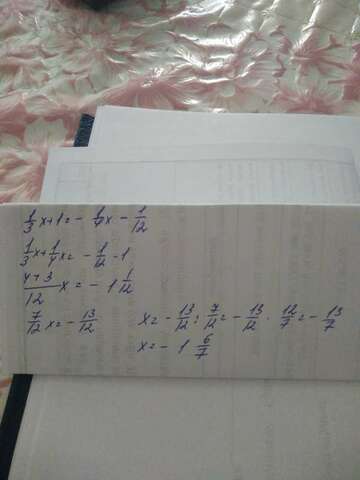 1/3 x + 1 = - 1/4 x - 1/12
1/3 x + 1/4 x = - 1/12 - 1
(4+3)/12 x = - 1 1/12
7/12 x = - 13/12
x = - 13/12 : 7/12 = - 13/12 · 12/7 = - 13/7
x = - 1 6/7